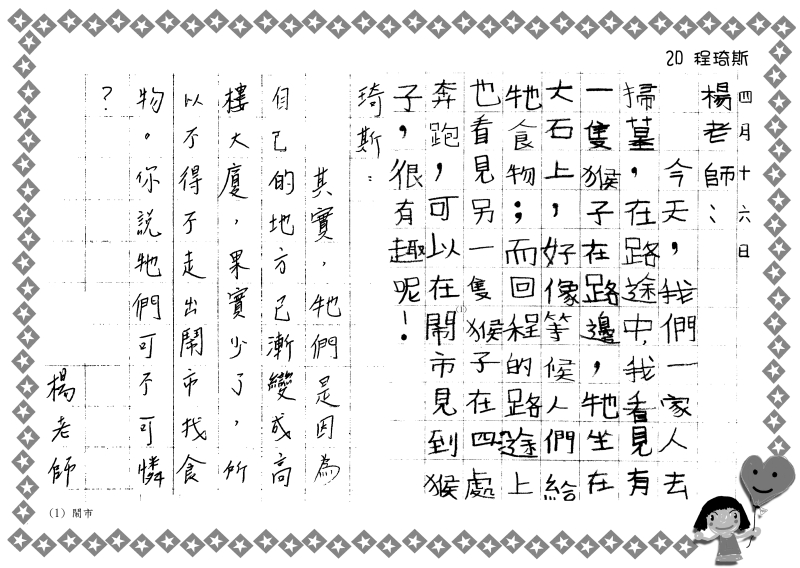 20 程琦斯
四月十六日
楊老師：
今天，我們一家人去
掃墓，在路途中，我看見有
一隻猴子在路邊，牠坐在
大石上，好像等候人們給
牠食物；而回程的路途上
也看見另一隻猴子在四處
奔跑，可以在鬧(1)市見到猴
子，很有趣呢！
琦斯：
其實，牠們是因為
自己的地方已漸變成高
樓大廈，果實少了，所
以不得不走出鬧市找食
物。你說牠們可不可憐
？
楊老師
(1) 鬧市